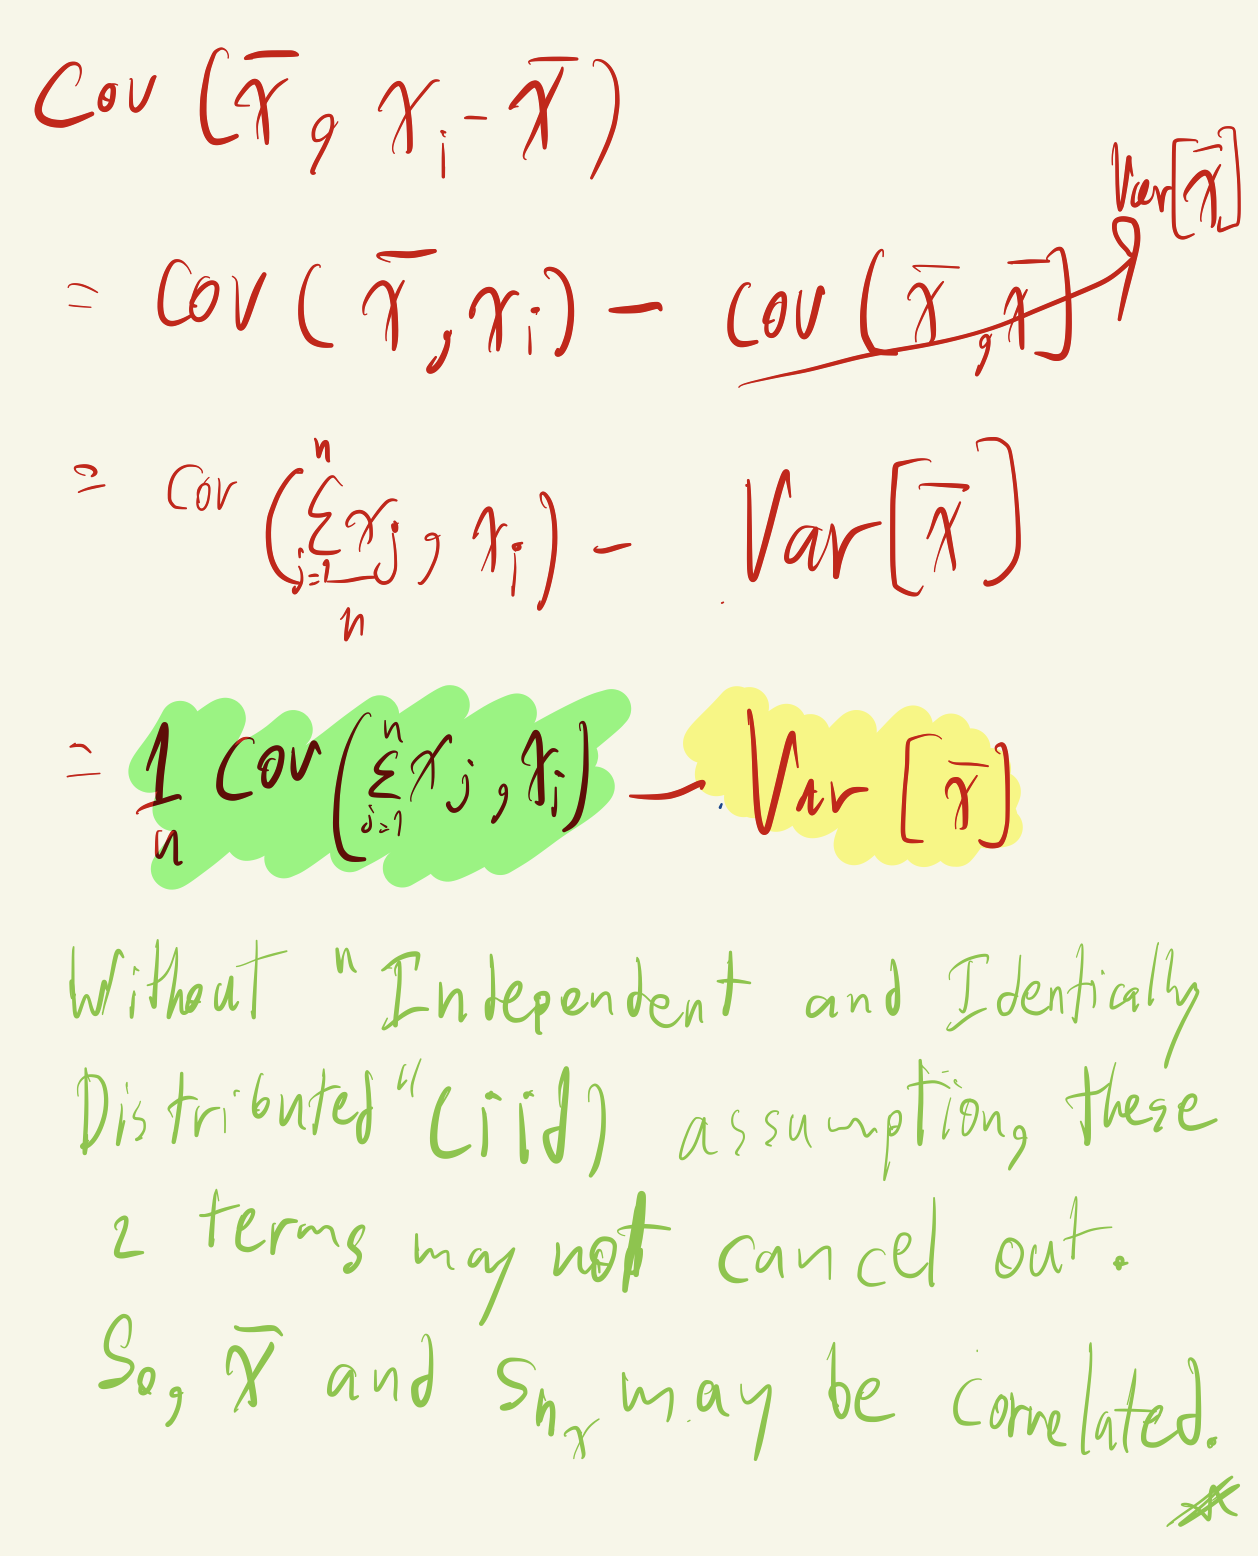 Cov (x̄, xᵢ - x̄)
Var[x̄]
= Cov (x̄, xᵢ) - Cov (x̄, x̄]
= Cov (∑ⱼ₌₁ⁿ xⱼ / n, xᵢ) - Var[x̄]
= 1/n Cov (∑ⱼ₌₁ⁿ xⱼ, xᵢ) - Var [x̄]
Without "Independent and Identically
Distributed" (iid) assumption, these
2 terms may not cancel out.
So, x̄ and Sₙₓ may be correlated.